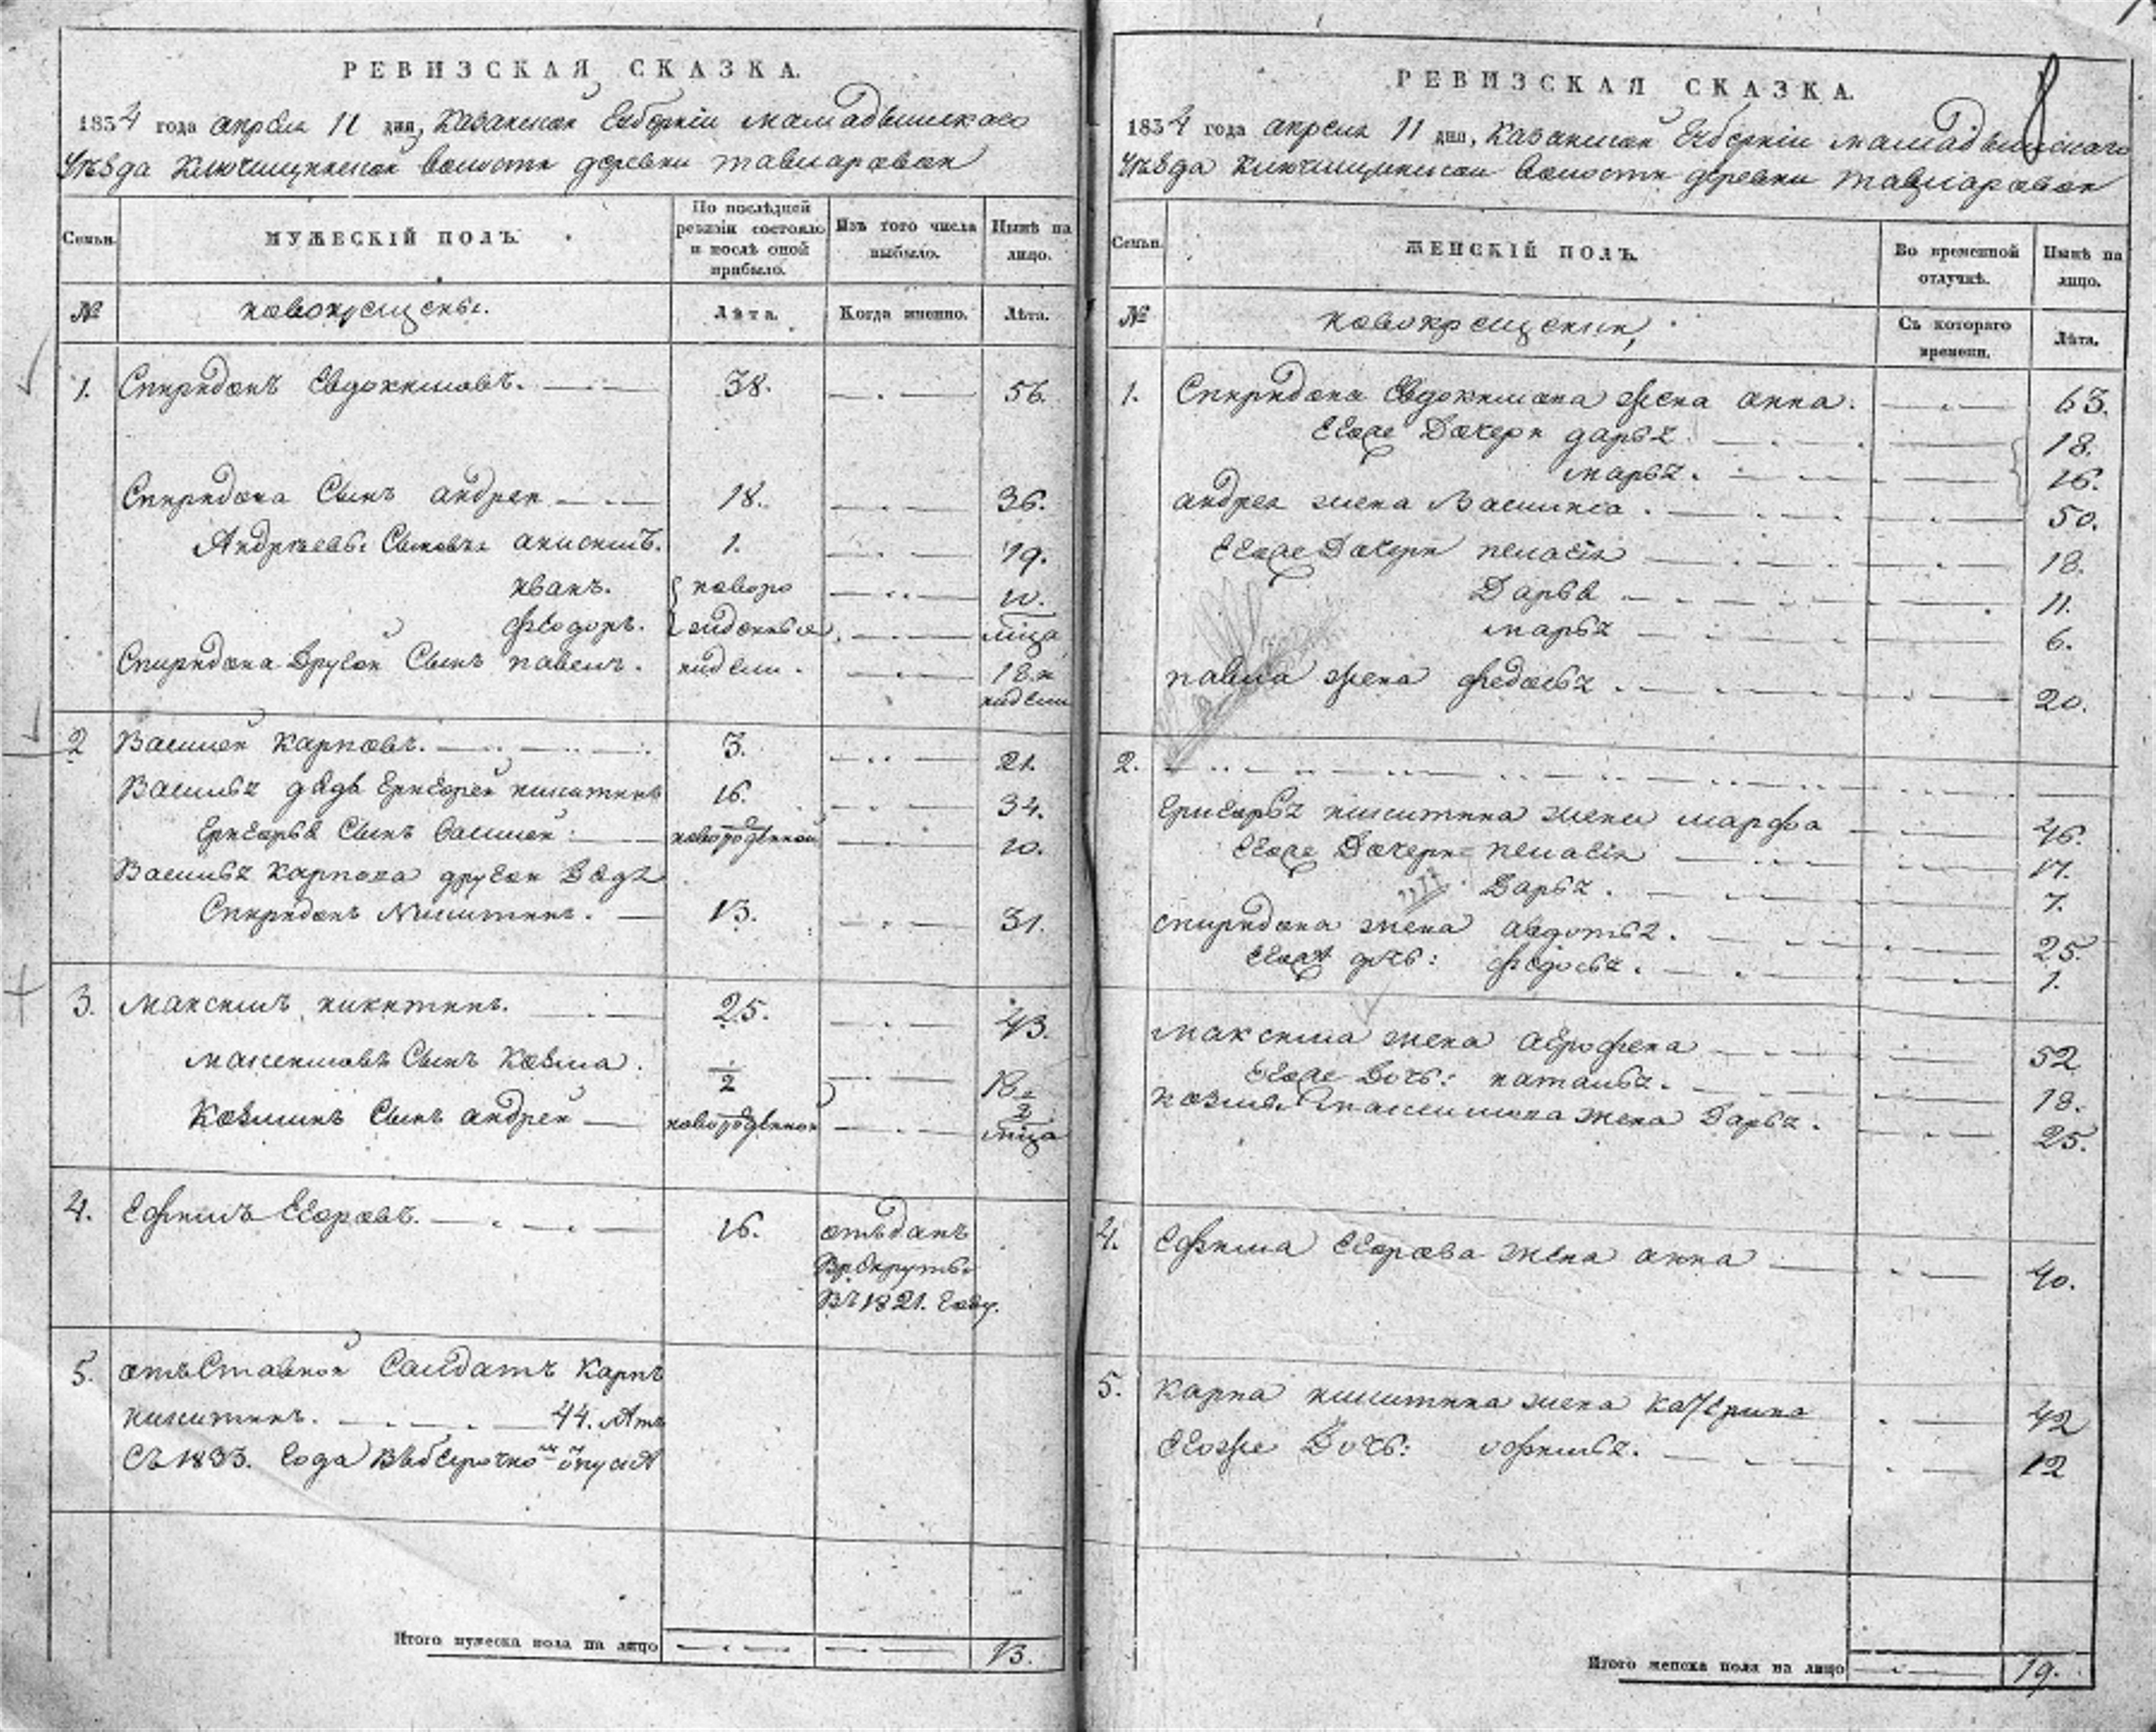 РЕВИЗСКАЯ СКАЗКА.
1834 года апреля 11 дня, Казанской Губернiи Мамадышскаго
Уѣзда Ключищинской волости деревни
Семьи.
МУЖЕСКIЙ ПОЛЪ.
По послѣдней ревизiи состояло и послѣ оной прибыло.
Изъ того числа выбыло.
Нынѣ на лицо.
№
новокрещены.
Лѣта.
Когда именно.
Лѣта.
1. Спиридонъ Евдокимовъ. 38. 56.
Спиридона Сынъ андреи 18. 36.
Андрѣевы Сыновья анисимъ. 1. 19.
иванъ. новоро 10.
Федоръ. жденныя мѣца
Спиридона Другой Сынъ павелъ. недели. 18 и
недели
2 Василей Карповъ. 3. 21.
Васильꙗ дядя Григорей никитинъ 16. 34.
Григорья Сынъ василей: новорожденной 10.
Васильꙗ Карпова другой дядꙗ
Спиридонъ Никитинъ. 13. 31.
3. Максимъ никитинъ. 25. 43.
максимовъ Сынъ Козма. 1/2 18 1/2
Козминъ Сынъ андрей новорожденной мѣца
4. Ефимъ Егоровъ. 16. отъданъ
Врекруты
Въ 1821. году.
5. отъставной Салдатъ Карпъ
никитинъ. 44. лѣтъ
Съ 1833. года
Итого мужеска пола на лицо 13.
РЕВИЗСКАЯ СКАЗКА.
8
1834 года апреля 11 дня, Казанской Губернiи Мамадышскаго
Уѣзда Ключищинской волости деревни
Семьи.
ЖЕНСКIЙ ПОЛЪ.
Во временной отлучкѣ.
Нынѣ на лицо.
№
новокрещении,
Съ котораго времени.
Лѣта.
1. Спиридона Евдокимова жена анна. 63.
Егоже Дочери дарьꙗ. 18.
марьꙗ. 16.
андреꙗ жена Василиса. 50.
Егоже Дочери пелагiꙗ 18.
Дарья 11.
марьꙗ 6.
павла жена федосьꙗ. 20.
2.
Григорьꙗ никитина жена марфа 46.
Егоже Дочери пелагiꙗ 17.
Дарьꙗ. 7.
спиридона жена авдотьꙗ. 25.
Егоже дочь: федосьꙗ. 1.
максима жена аграфена 52
Егоже Дочь: натальꙗ. 18.
козмы максимова жена Дарьꙗ. 25.
4. Ефима Егорова жена анна 40.
5. Карпа никитина жена Катерина 42
Егоже Дочь: офимьꙗ. 12
Итого женска пола на лицо 19.